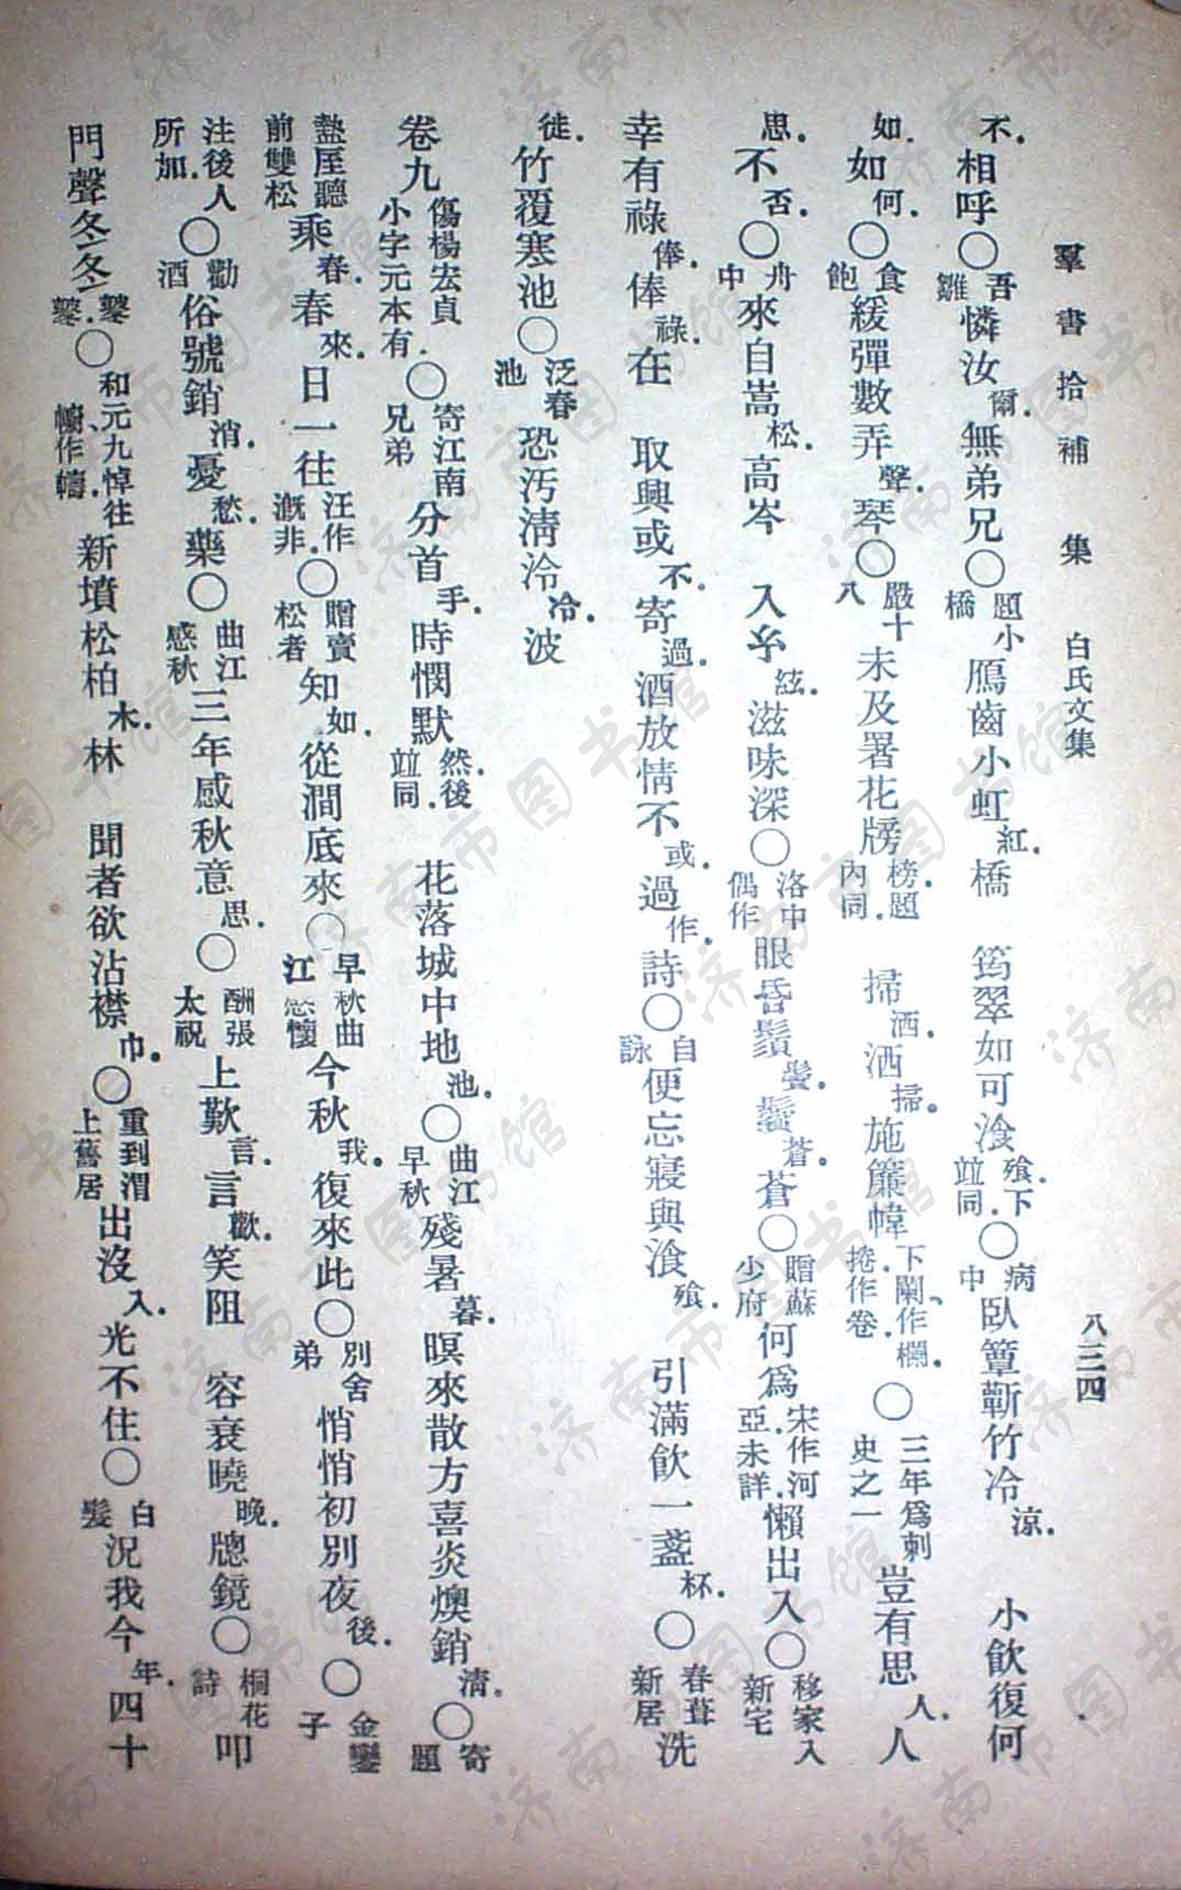 羣書拾補 集 白氏文集 八三四
不。相呼○吾雛憐汝爾。無弟兄○題小橋鴈齒小虹紅。橋 筠翠如可湌飱。下竝同。○病中臥簟蘄竹冷涼。 小飲復何
如。如何。○食飽緩彈數弄聲。琴○嚴十八未及署花牓榜。題內同。 掃洒。洒掃。施簾幃下闌、作欄。捲作卷。○三年爲刺史之一豈有思人。人
思。不否。○舟中來自嵩松。高岑 入絃。滋味深○洛中偶作眼昏鬚鬢。鬢蒼。蒼○贈蘇少府何爲宋作河亞。未詳。懶出入○移家入新宅
幸有祿俸。俸祿。在 取興或不。寄過。酒放情不或。過作。詩○自詠便忘寢與湌飱。 引滿飲一盞杯。○春葺新居洗
徒。竹覆寒池○泛春池恐汚淸泠冷。波
卷九傷楊宏貞小字元本有。○寄江南兄弟分首手。時憫默然。後竝同。 花落城中地池。○曲江早秋殘暑暮。暝來散方喜炎燠銷淸。○寄題
盩厔聽前雙松乘春。春來。日一往汪作漑非。○贈賣松者知如。從澗底來○早秋曲江感懷今秋我。復來此○別舍弟悄悄初別夜後。○金鑾子
注後人所加。○勸酒俗號銷消。憂愁。藥○曲江感秋三年感秋意思。○酬張太祝上歎言。言歡。笑阻 容衰曉晚。牕鏡○桐花詩叩
門聲冬冬鼕。鼕。○和元九悼往幮、作幬。新墳松柏木。林 聞者欲沾襟巾。○重到渭上舊居出沒入。光不住○白髮況我今年。四十
济南市图书馆